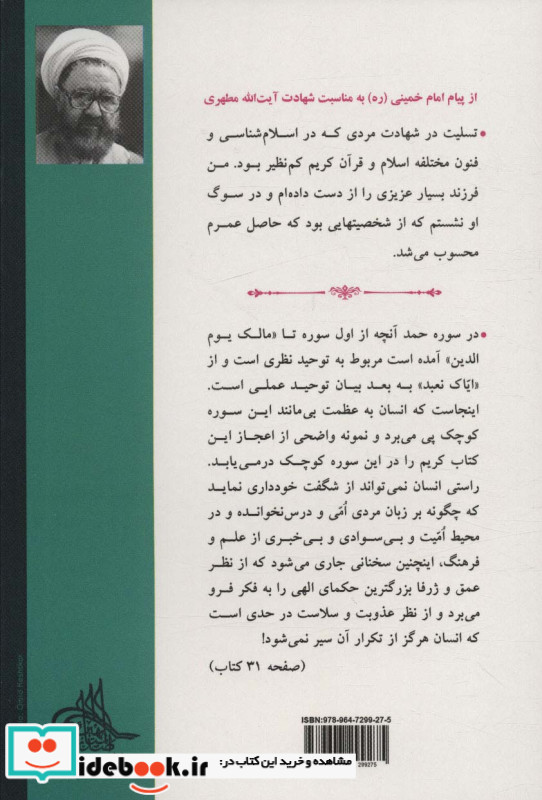 از پیام امام خمینی (ره) به مناسبت شهادت آیت‌الله مطهری
• تسلیت در شهادت مردی که در اسلام‌شناسی و
فنون مختلفه اسلام و قرآن کریم کم‌نظیر بود. من
فرزند بسیار عزیزی را از دست داده‌ام و در سوگ
او نشستم که از شخصیتهایی بود که حاصل عمرم
محسوب می‌شد.
• در سوره حمد آنچه از اول سوره تا «مالک یوم
الدین» آمده است مربوط به توحید نظری است و از
«ایّاک نعبد» به بعد بیان توحید عملی است.
اینجاست که انسان به عظمت بی‌مانند این سوره
کوچک پی می‌برد و نمونه واضحی از اعجاز این
کتاب کریم را در این سوره کوچک درمی‌یابد.
راستی انسان نمی‌تواند از شگفت خودداری نماید
که چگونه بر زبان مردی اُمّی و درس‌نخوانده و در
محیط اُمّیت و بی‌سوادی و بی‌خبری از علم و
فرهنگ، اینچنین سخنانی جاری می‌شود که از نظر
عمق و ژرفا بزرگترین حکمای الهی را به فکر فرو
می‌برد و از نظر عذوبت و سلاست در حدی است
که انسان هرگز از تکرار آن سیر نمی‌شود!
(صفحه ۳۱ کتاب)
ISBN: 978-964-7299-27-5
299275
مشاهده و خرید این کتاب در:
idebook.ir